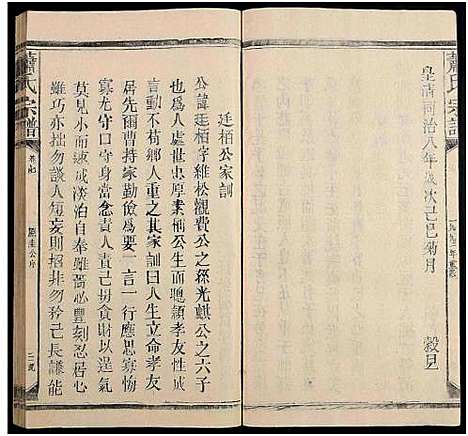 皇清同治八年歲次己巳菊月　穀旦
廷栢公家訓
公諱廷栢字維松觀費公之孫光麒公之六子
也爲人處世忠厚素稱公生而聰頴孝友性成
言動不苟鄉人重之其家訓曰人生立命孝友
居先爾曹持家勤儉要一言一行應思寡悔
寡尤守身當念責人責己毋貪口腹毋逞氣
莫見小而速成淡泊自奉雖薔必豐刻忍居心
雖巧亦拙勿談人短妄則招非勿矜己長謙能
蕭氏宗譜
卷首
蕭氏宗譜